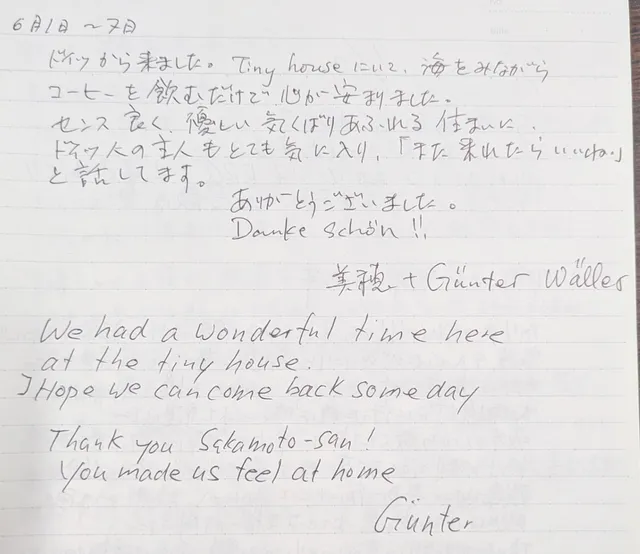 6月1日～7日
ドイツから来ました。Tiny houseにいて、海をみながら
コーヒーを飲むだけで心が安まりました。
センス良く、優しい気くばりあふれる住まいに、
ドイツ人の主人もとても気に入り、「また来れたらいいね。」
と話してます。
ありがとうございました。
Danke schön !!
美穂 + Günter Wäller
We had a wonderful time here
at the tiny house.
I Hope we can come back some day
Thank you Sakamoto-san!
You made us feel at home
Günter